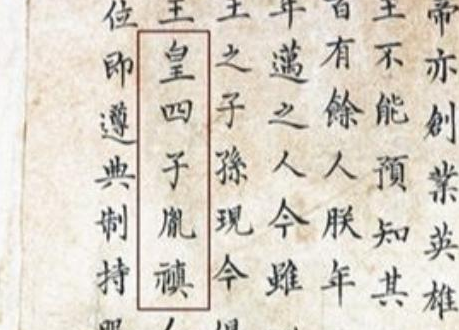 帝亦創業英雄
主不能預知其
百有餘人朕年
年邁之人今雖
王之子孫現今
王皇四子胤禛人
位即遵典制持